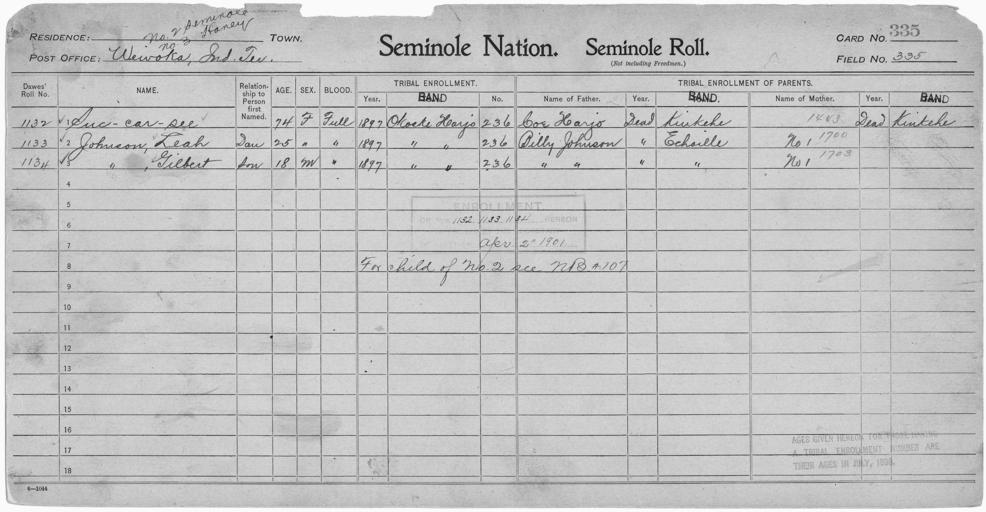 No. 2 Seminole
RESIDENCE: No 3 Haney TOWN.
POST OFFICE: Wewoka, Ind. Ter.
Seminole Nation. Seminole Roll.
(Not including Freedmen.)
CARD NO. 335
FIELD NO. 335
Dawes' Roll No. NAME. Relationship to Person first Named. AGE. SEX. BLOOD. TRIBAL ENROLLMENT. TRIBAL ENROLLMENT OF PARENTS.
Year. BAND No. Name of Father. Year. BAND. Name of Mother. Year. BAND
1132 1 Suc-car-see 74 F Full 1897 Harjo 236 Coe Harjo Dead 1443 Dead
1133 2 Johnson, Leah Dau 25 " " 1897 " " 236 Billy Johnson " Echoille No 1 1700
1134 3 " , Gilbert Son 18 M " 1897 " " 236 " " " " No 1 1703
4
5
ENROLLMENT
6 1132 1133 1134 PERSON
7 Apr 2" 1901
8 For child of No. 2 see NB #107
9
10
11
12
13
14
15
16
AGES GIVEN HEREON FOR THOSE HAVING
17 A TRIBAL ENROLLMENT NUMBER ARE
THEIR AGES IN JULY, 1898.
18
6—1044